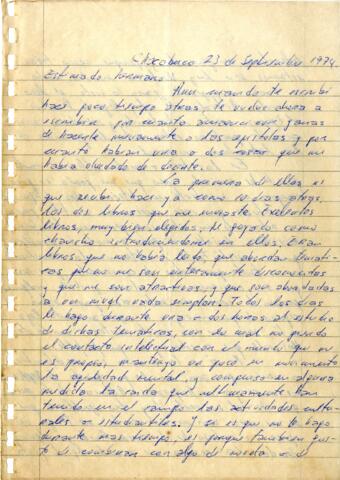 Chacabuco 23 de Septiembre 1974
Estimado hermano:
Aun cuando te escribí
hace poco tiempo atras, te vuelvo ahora a
escribir por cuanto amanecí con ganas
de hacerte nuevamente a los epístolas y por
cuanto habían una o dos cosas que me
había olvidado de decirte.
La primera de ellas es
que recibí, hace ya como 10 dias atras,
los dos libros que me enviaste. Excelentes
libros, muy bien elegidos. He gozado como
chancho introduciendome en ellos. Eran
libros que no había leído, que abordan temáti-
cas que no me son enteramente desconocidas
y que me son atractivas, y que son abordadas
a un nivel nada simplon. Todos los dias
le hago durante una o dos horas al estudio
de dichas temáticas, con lo cual no pierdo
el contacto intelectual con el mundo que me
es propio, mantengo un poco en movimiento
la agilidad mental, y compenso en alguna
medida la caida que ultimamente han
tenido en el campo las actividades cultu-
rales o estudiantiles. Y si es que no le hago
durante mas tiempo, es porque tambien gus-
to de combinar con algo de novela o de